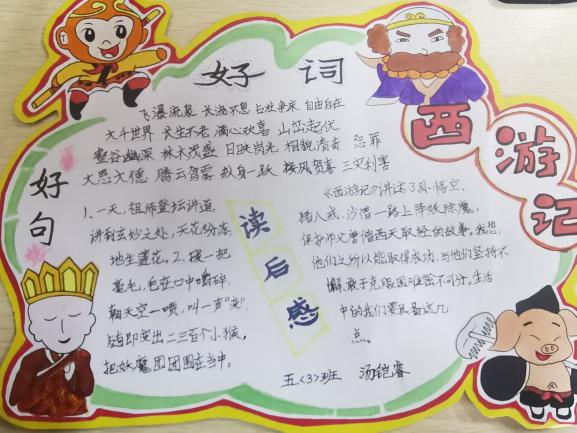 好词
飞瀑流泉 长流不息 自由自在
大千世界 长生不老 满心欢喜 山峦起伏
壑谷幽深 林木茂盛 日映岚光 相貌清奇 恕罪
大恩大德 腾云驾雾 纵身一跃 接风贺喜 三灾利害
西游记
好句
1、一天,祖师登坛讲道,
讲到玄妙之处,天花纷落
地生莲花。2、拔一把
毫毛,丢在口中嚼碎,
朝天空一喷,叫一声"变",
随即变出二三百个小猴,
把妖魔团团围在当中。
读后感
《西游记》讲述了孙悟空、
猪八戒、沙僧一路上降妖除魔,
保护师父唐僧西天取经的故事。我想,
他们之所以能取得成功,与他们坚持不
懈、敢于克服困难密不可分。生活
中的我们需具备这几
点。
五<3>班 汤铠睿